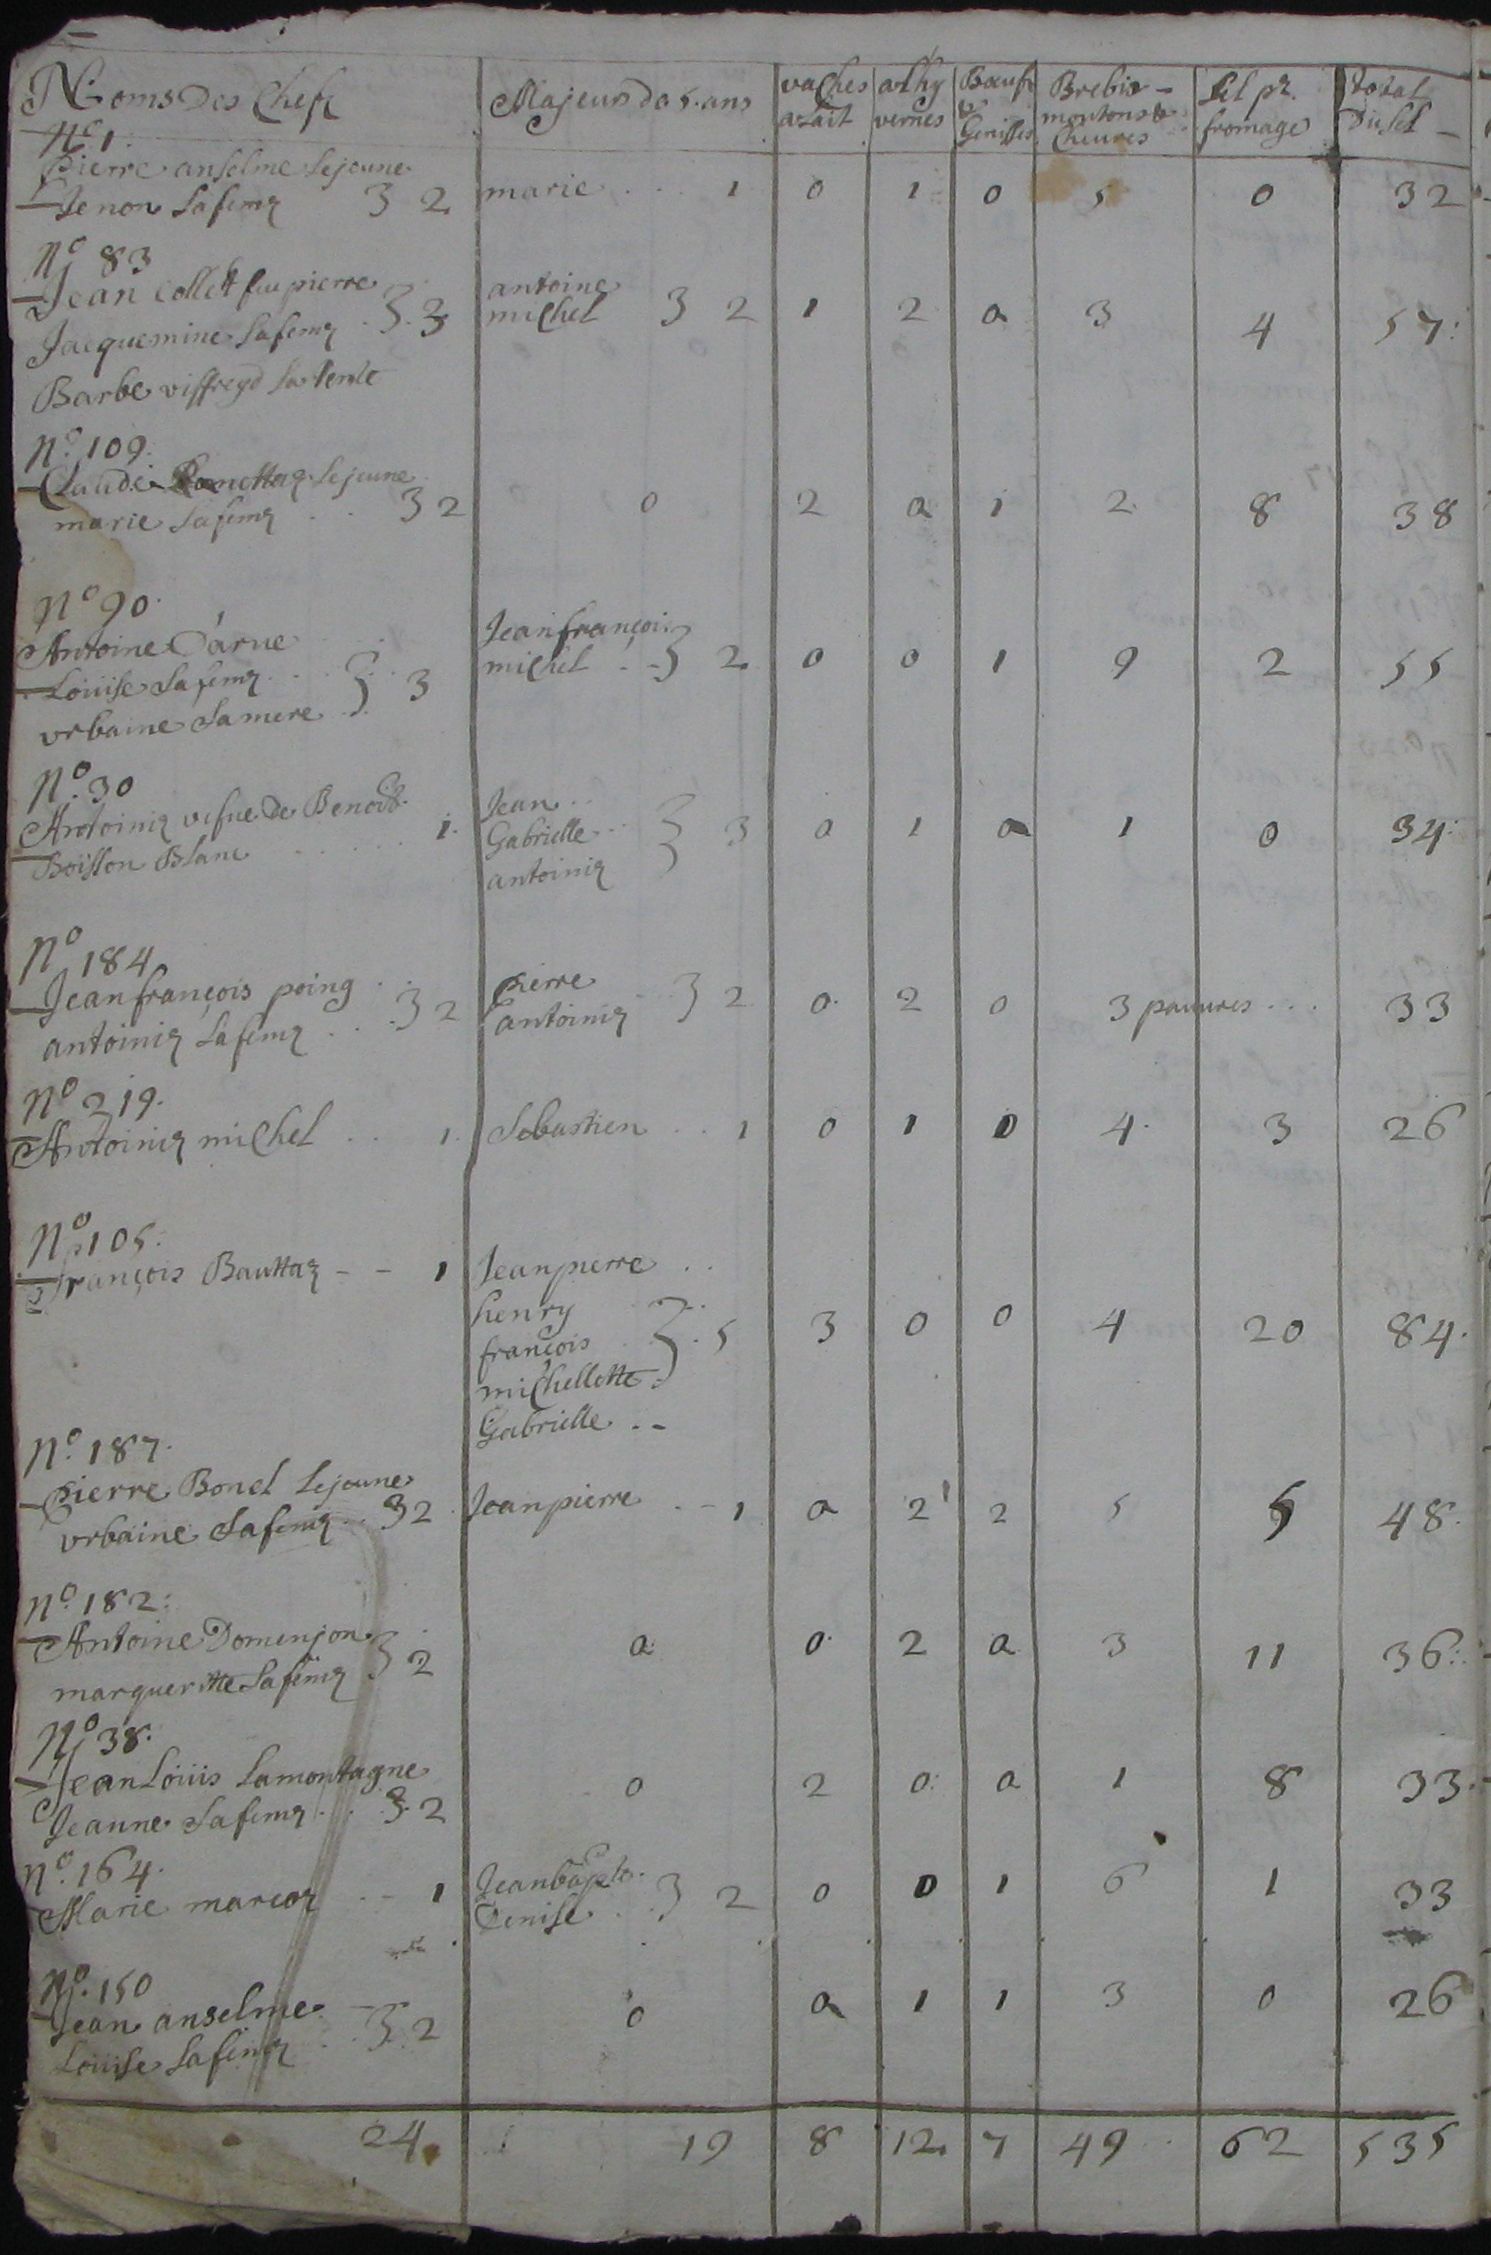 Noms Des Chefs | Majeurs de 5. ans | vaches a Lait | a Lhy vernes | Bœufs & Genisses | Brebis moutons & Cheures | Sel pr. fromage | total Du sel
No 1.
Pierre anselme Lejeune
Jenon Lafeme 3 2 | marie . . . 1 | 0 | 1 | 0 | 5 | 0 | 32
No 83
Jean Collet feu pierre | antoine
Jacquemine Lafeme 3 3 | michel 3 2 | 1 | 2 | 0 | 3 | 4 | 57
Barbe viffreyd
No 109.
Claude Lejeune
marie Lafeme . . 3 2 | 0 | 2 | 0 | 1 | 2 | 8 | 38
No 90.
Antoine Darue | Jean françois
Louise Lafeme . . 3 3 | michel . . 3 2 | 0 | 0 | 1 | 9 | 2 | 55
vrbaine Lamere
No 30
Antoinie vefue de Benoit | Jean
1. | Gabrielle 3 3 | 0 | 1 | 0 | 1 | 0 | 34
Boisson Blanc | antoinie
No 184
Jean françois poing | pierre
antoinie Lafeme . . 3 2 | antoinie 3 2 | 0 | 2 | 0 | 3 pauures . . . | 33
No 219.
Antoinie michel . . 1. | Sebastien . . 1 | 0 | 1 | 0 | 4 | 3 | 26
No 105.
françois Bauttaz - - 1 | Jean pierre . .
henry
françois 3. 5 | 3 | 0 | 0 | 4 | 20 | 84.
michellette
Gabrielle . -
No 187.
Pierre Bonel Lejeune
vrbaine Lafeme . . 3 2 | Jean pierre . - 1 | 0 | 2 | 2 | 5 | 5 | 48.
No 182:
Antoine Domenjon
margueritte Lafeme 3 2 | 0 | 0 | 2 | 0 | 3 | 11 | 36:
No 38.
Jean Louis Lamontagne
Jeanne Lafeme . . 3 2 | 0 | 2 | 0 | 0 | 1 | 8 | 33.
No 164.
Marie marcoz . - 1 | Jean bapte.
Denise . . 3 2 | 0 | 0 | 1 | 6 | 1 | 33
No. 150
Jean anselme
Louise Lafeme . . 3. 2 | 0 | 0 | 1 | 1 | 3 | 0 | 26
24 | 19 | 8 | 12. | 7 | 49 | 62 | 535